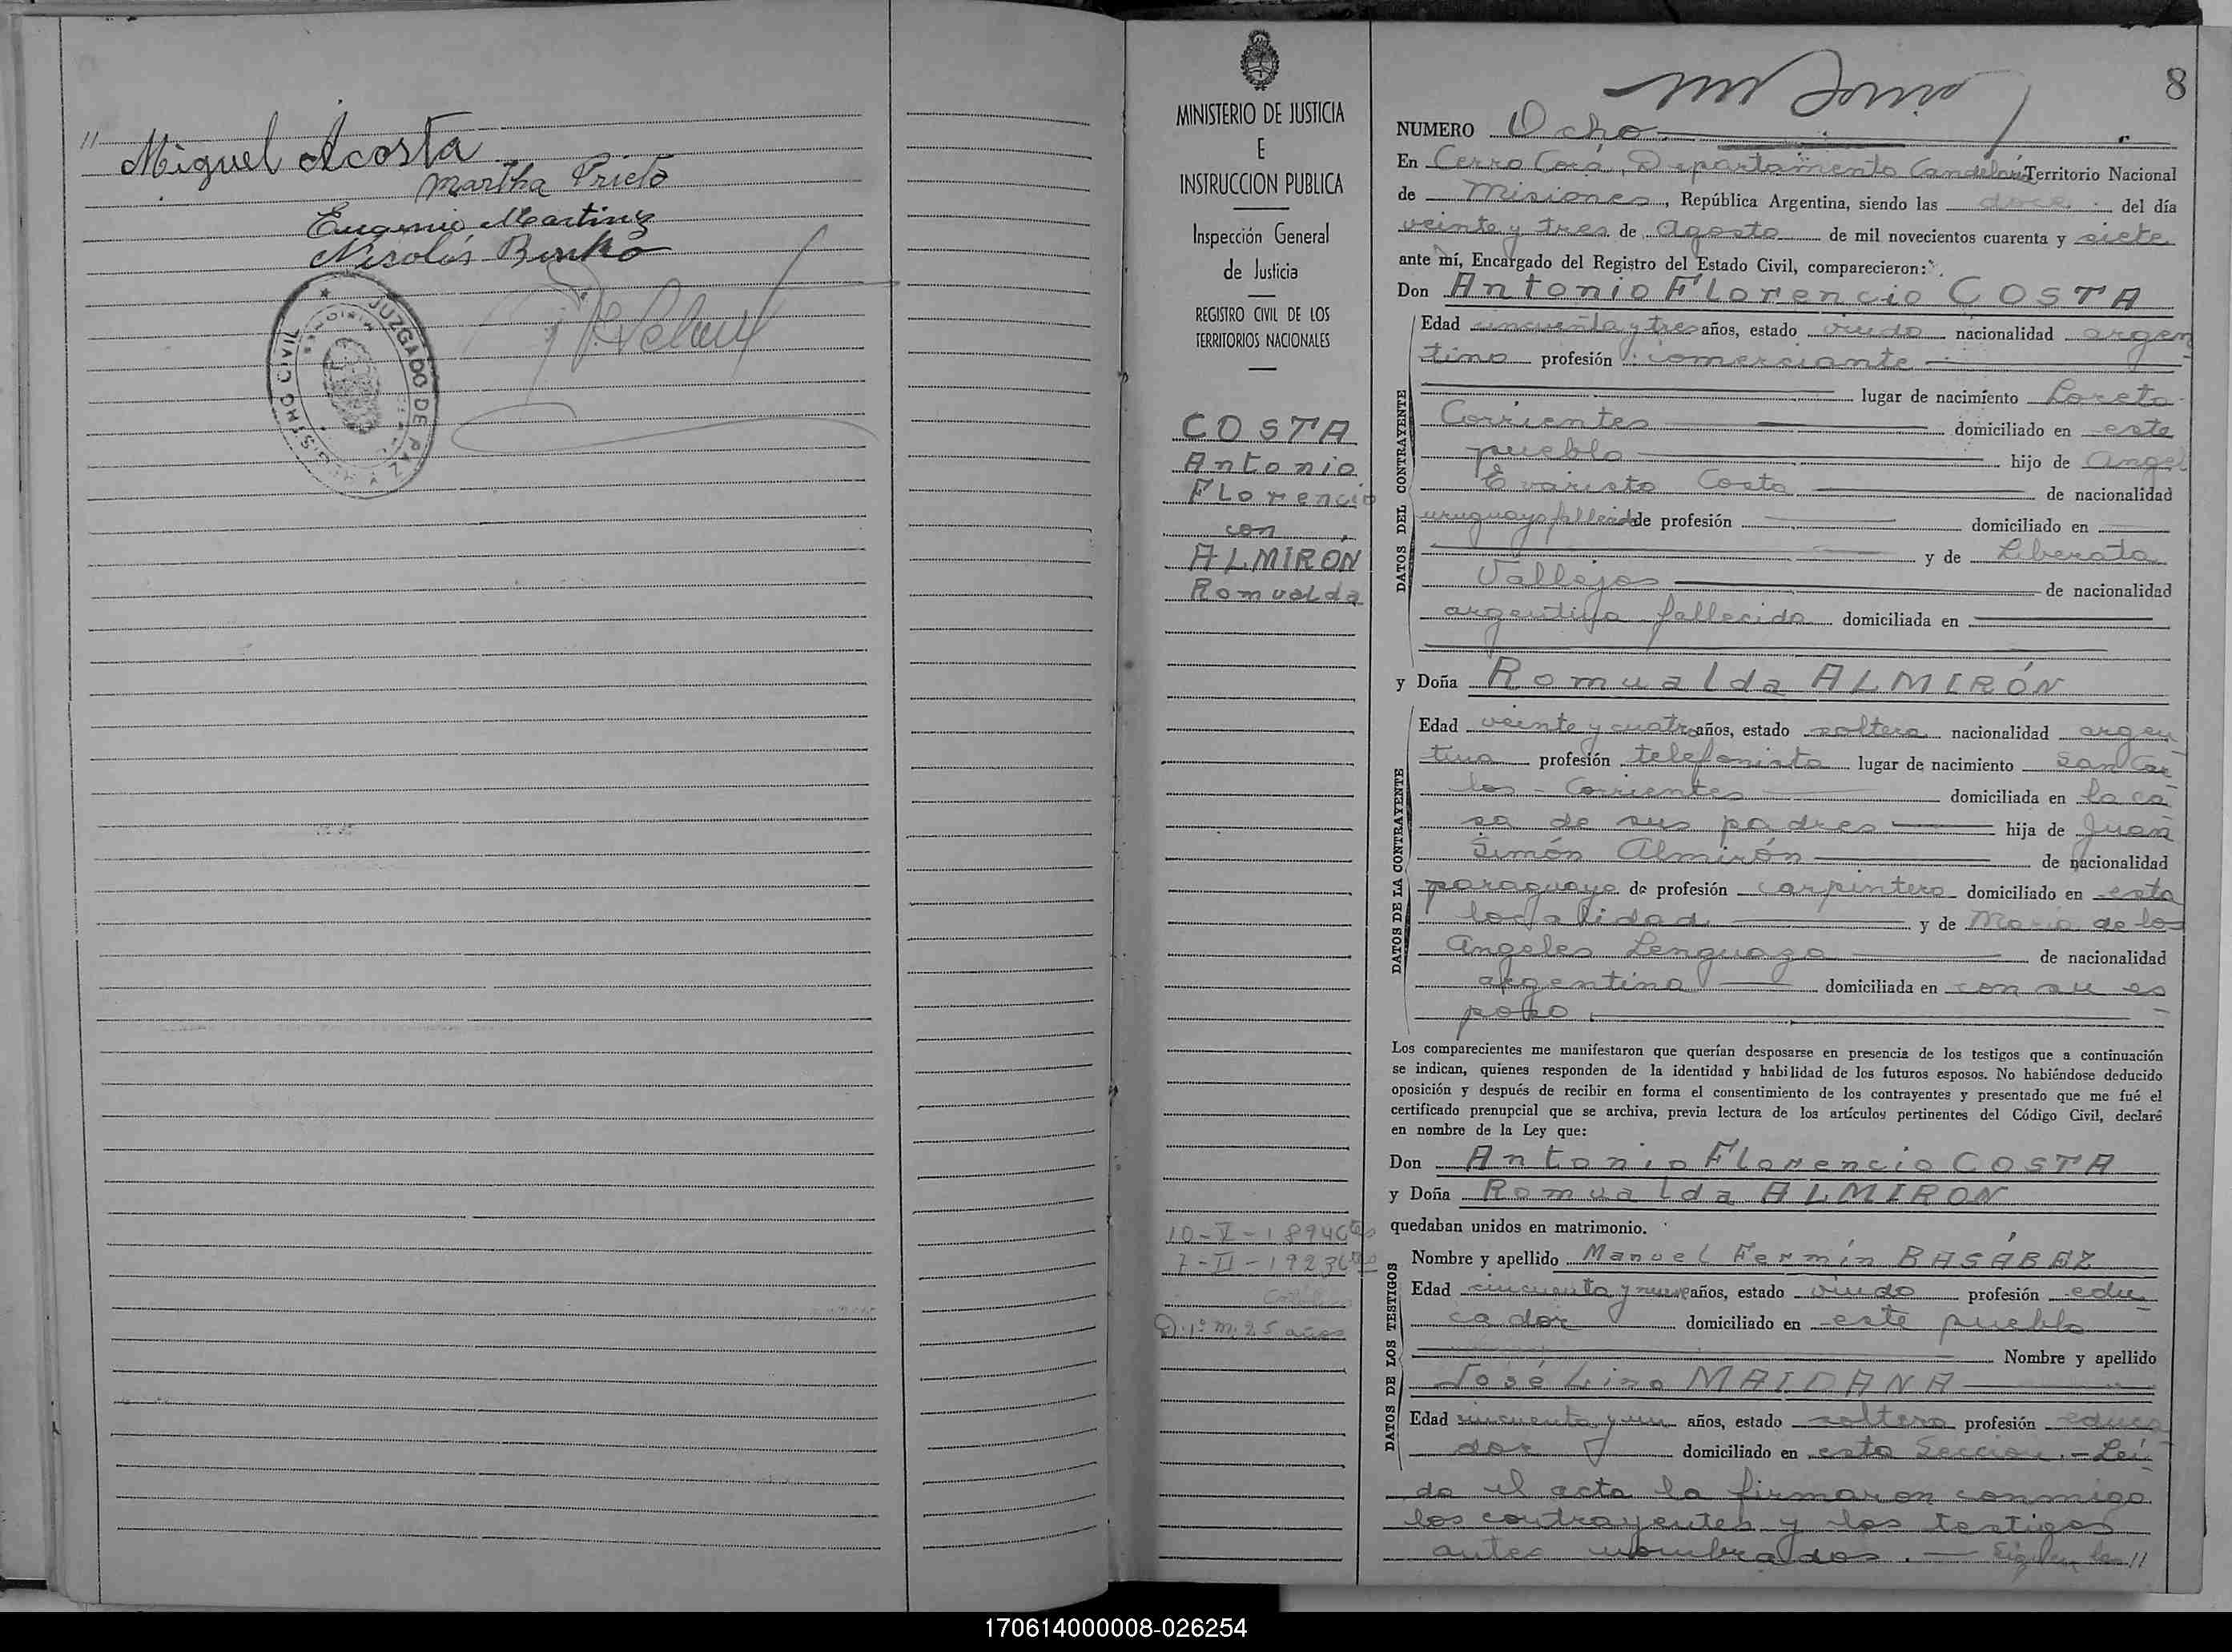 //
Miguel Acosta
Martha Prieto
Eugenio Martinez
Nicolás
JUZGADO DE PAZ Y REGISTRO CIVIL
MISIONES
MINISTERIO DE JUSTICIA
E
INSTRUCCION PUBLICA
Inspección General
de Justicia
REGISTRO CIVIL DE LOS
TERRITORIOS NACIONALES
COSTA
Antonio
Florencio
con
ALMIRÓN
Romualda
10-V-1894 Ctes
7-II-1923 Ctes
D. 1º m. 25 años
8
NUMERO Ocho
En Cerro Corá, Departamento Candelaria Territorio Nacional
de Misiones, República Argentina, siendo las doce del día
veinte y tres de Agosto de mil novecientos cuarenta y siete
ante mí, Encargado del Registro del Estado Civil, comparecieron:
Don Antonio Florencio COSTA
DATOS DEL CONTRAYENTE
Edad cincuenta y tres años, estado viudo nacionalidad argen
tino profesión comerciante
lugar de nacimiento Loreto
Corrientes domiciliado en este
pueblo hijo de Angel
Evaristo Costa de nacionalidad
uruguayo fallecido de profesión domiciliado en
y de Liberata
Vallejos de nacionalidad
argentina fallecida domiciliada en
y Doña Romualda ALMIRÓN
DATOS DE LA CONTRAYENTE
Edad veinte y cuatro años, estado soltera nacionalidad argen
tina profesión telefonista lugar de nacimiento San Car
los - Corrientes domiciliada en la ca
sa de sus padres hija de Juan
Simón Almirón de nacionalidad
paraguayo de profesión carpintero domiciliado en esta
localidad y de Maria de los
Angeles Lenguaza de nacionalidad
argentina domiciliada en con su es
poso
Los comparecientes me manifestaron que querían desposarse en presencia de los testigos que a continuación
se indican, quienes responden de la identidad y habilidad de los futuros esposos. No habiéndose deducido
oposición y después de recibir en forma el consentimiento de los contrayentes y presentado que me fué el
certificado prenupcial que se archiva, previa lectura de los artículos pertinentes del Código Civil, declaré
en nombre de la Ley que:
Don Antonio Florencio COSTA
y Doña Romualda ALMIRON
quedaban unidos en matrimonio.
DATOS DE LOS TESTIGOS
Nombre y apellido Manuel Fermín BASÁBEZ
Edad cincuenta y nueve años, estado viudo profesión edu
cador domiciliado en este pueblo
Nombre y apellido
José Lino MAIDANA
Edad cincuenta y un años, estado soltero profesión educa
dor domiciliado en esta Sección.- Leí
da el acta la firmaron conmigo
los contrayentes y los testigos
antes nombrados. - Siguen las //
170614000008-026254